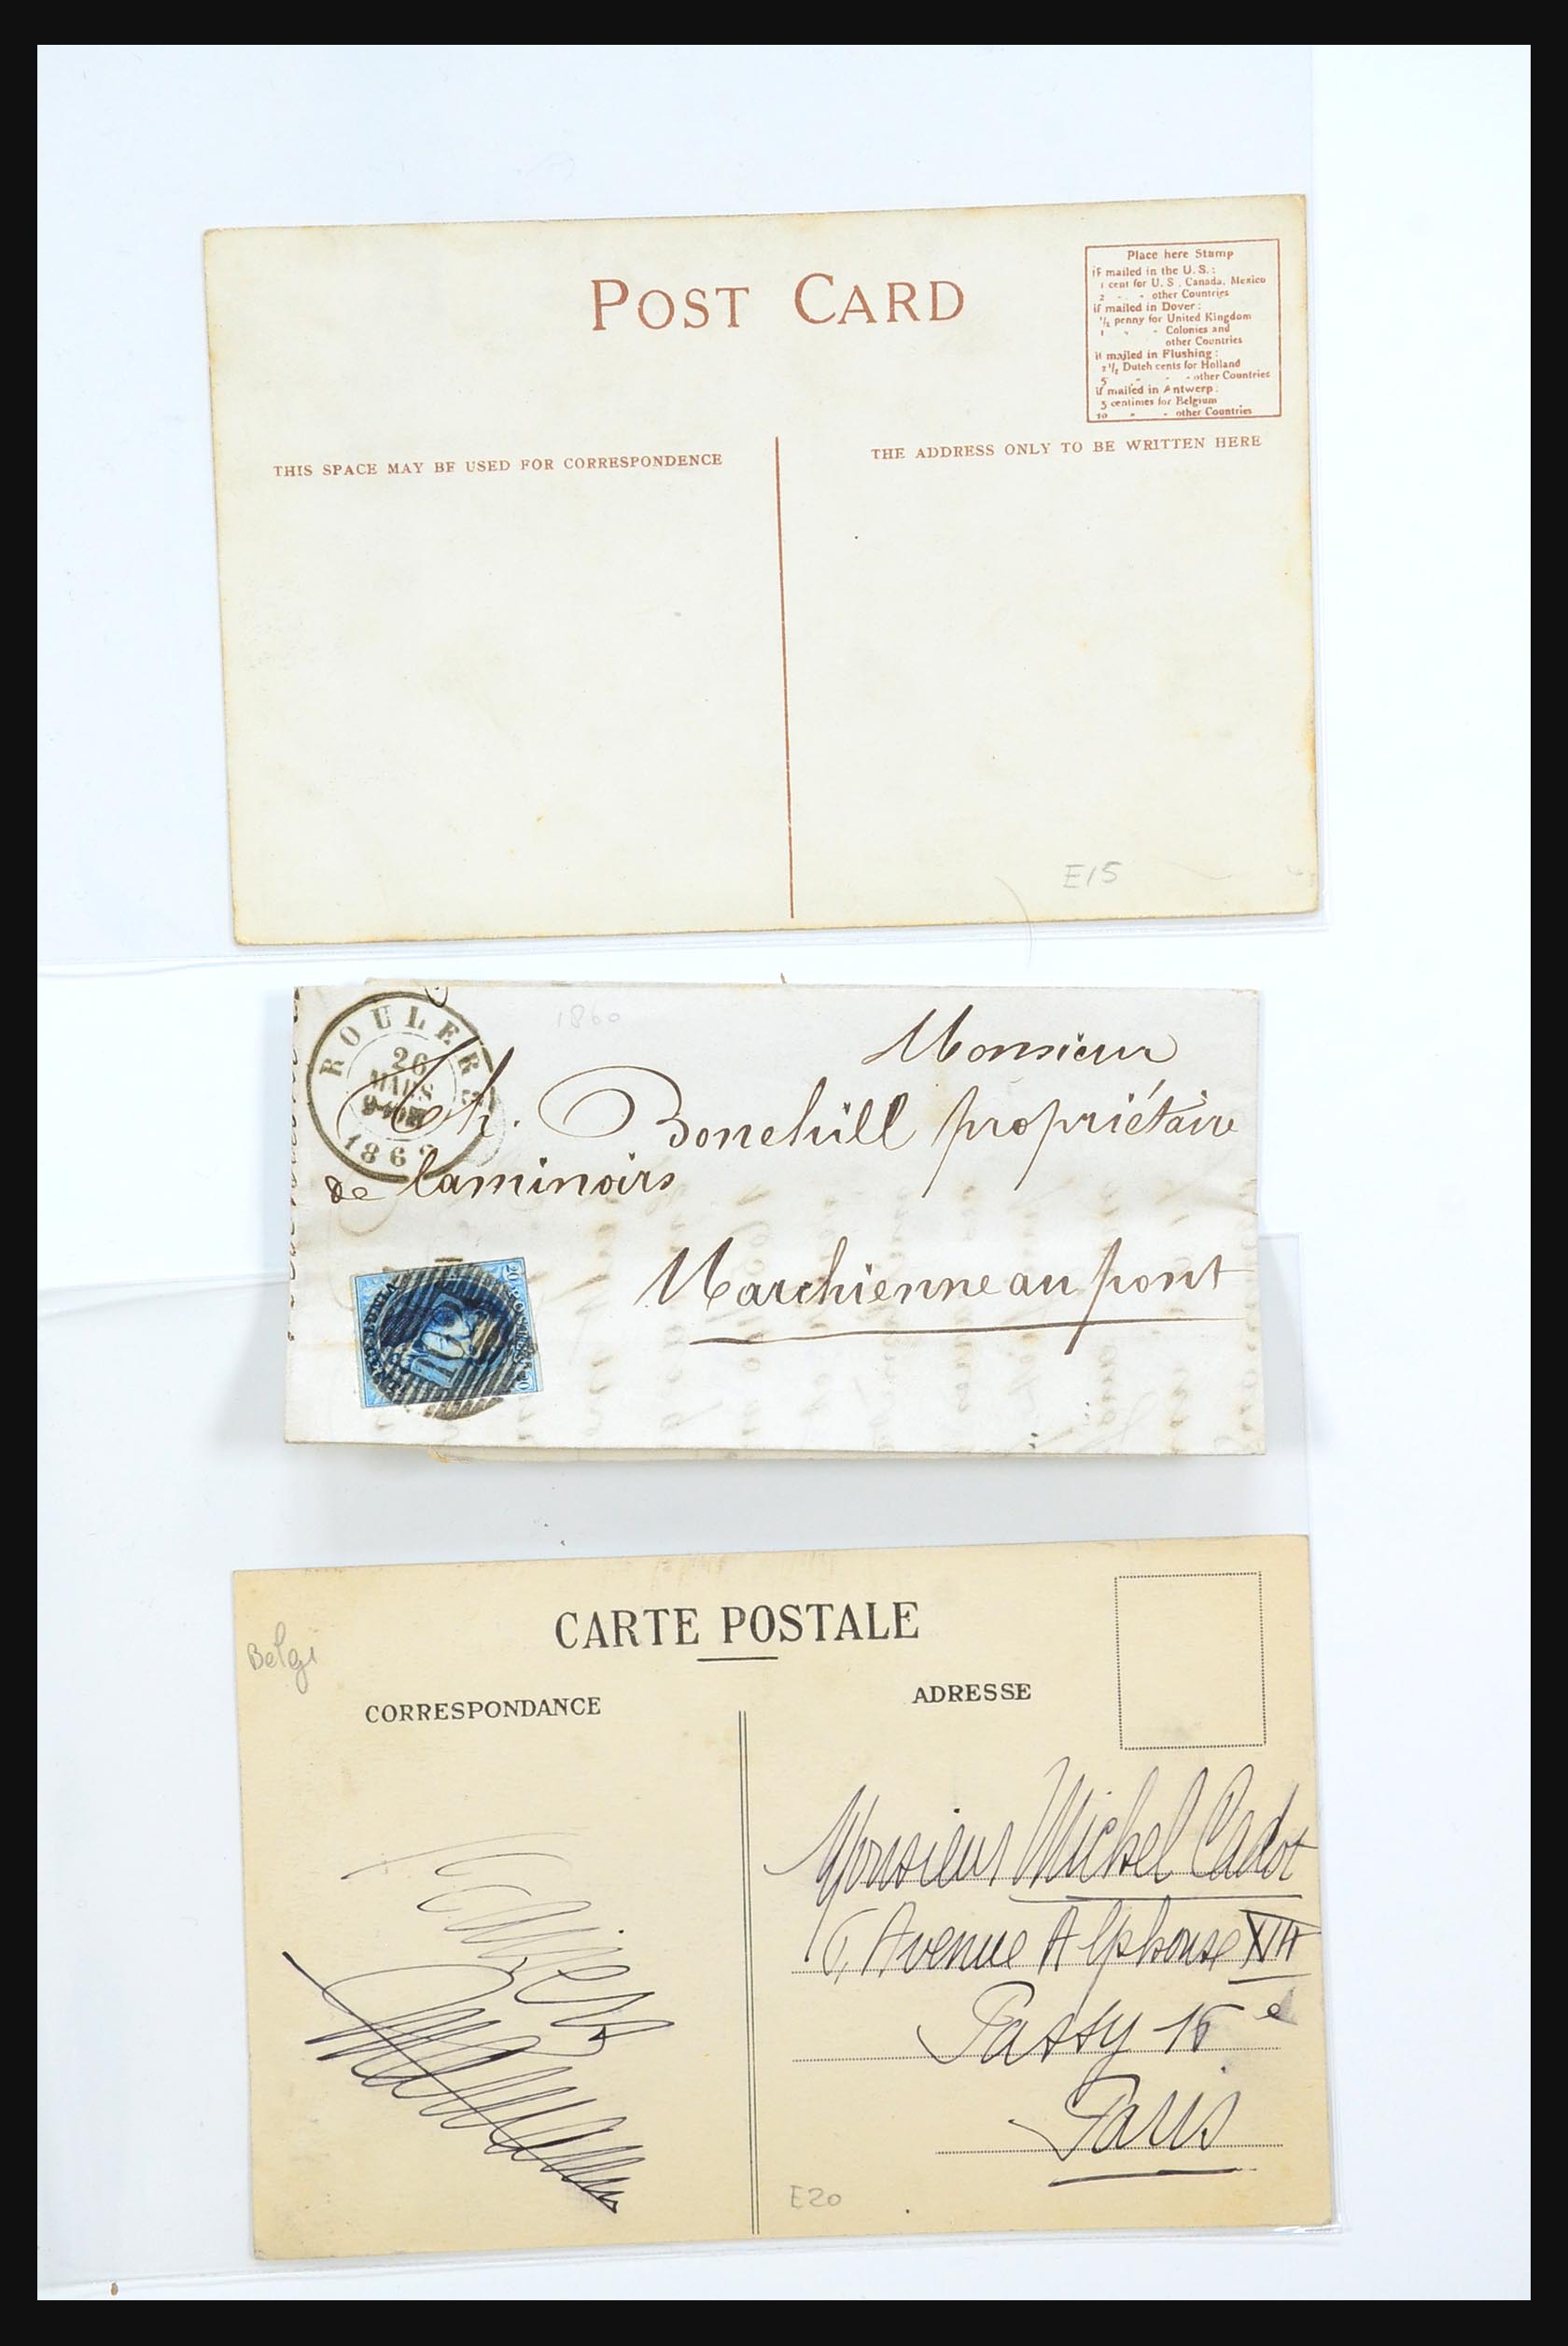 POST CARD
Place here Stamp
if mailed in the U.S.:
1 cent for U.S., Canada, Mexico
2 " " other Countries
if mailed in Dover:
½ penny for United Kingdom
1 " " Colonies and
other Countries
if mailed in Flushing:
2½ Dutch cents for Holland
5 " " other Countries
if mailed in Antwerp:
5 centimes for Belgium
10 " " other Countries
THIS SPACE MAY BE USED FOR CORRESPONDENCE
THE ADDRESS ONLY TO BE WRITTEN HERE
E15
ROULERS
26
MARS
186
1860
Monsieur
Th. Bonehill propriétaire
de laminoirs
Marchienne au pont
CARTE POSTALE
Belgi
CORRESPONDANCE
ADRESSE
Monsieur Michel Cadot
6, Avenue Alphonse XIII
Passy 16e
Paris
E20